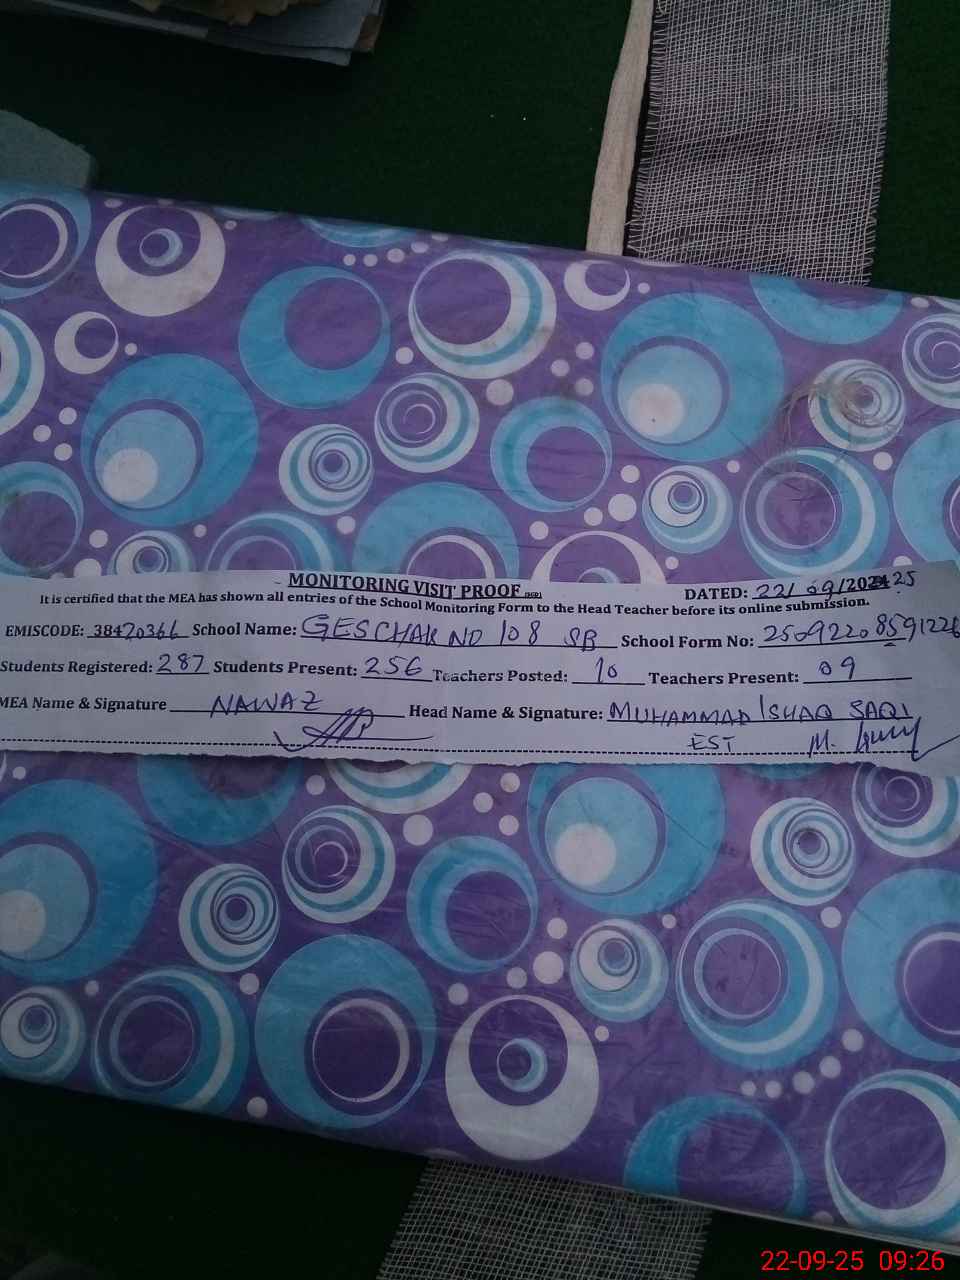 MONITORING VISIT PROOF (SGR)
DATED: 22/09/202425
It is certified that the MEA has shown all entries of the School Monitoring Form to the Head Teacher before its online submission.
EMISCODE: 38420366 School Name: GES CHAK NO 108 SB School Form No: 25092208591226
Students Registered: 287 Students Present: 256 Teachers Posted: 10 Teachers Present: 09
MEA Name & Signature NAWAZ Head Name & Signature: MUHAMMAD ISHAQ SAQI
EST M.
22-09-25 09:26